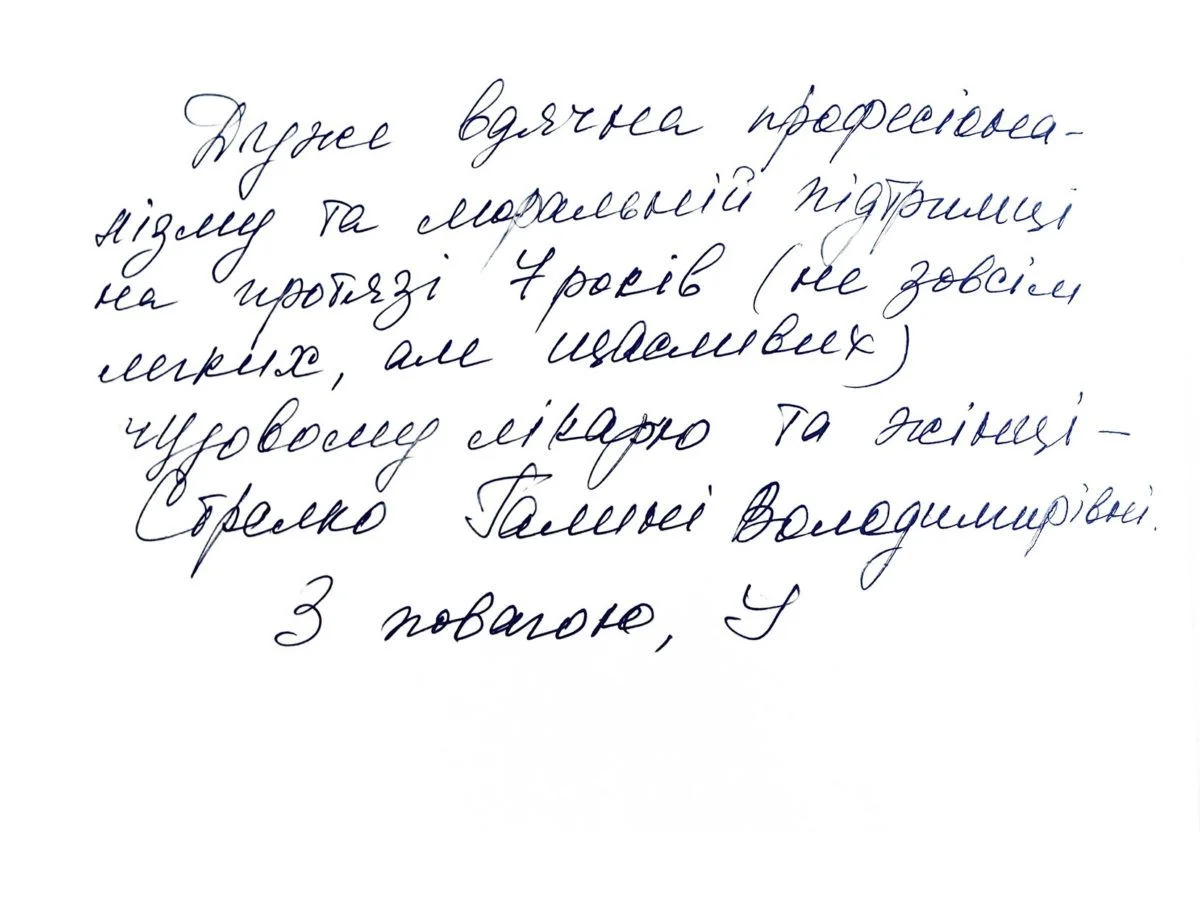 Дуже вдячна професіона-
лізму та моральній підтримці
на протязі 7 років (не зовсім
легких, але щасливих)
чудовому лікарю та жінці –
Стрелко Галині Володимирівні.
З повагою, У